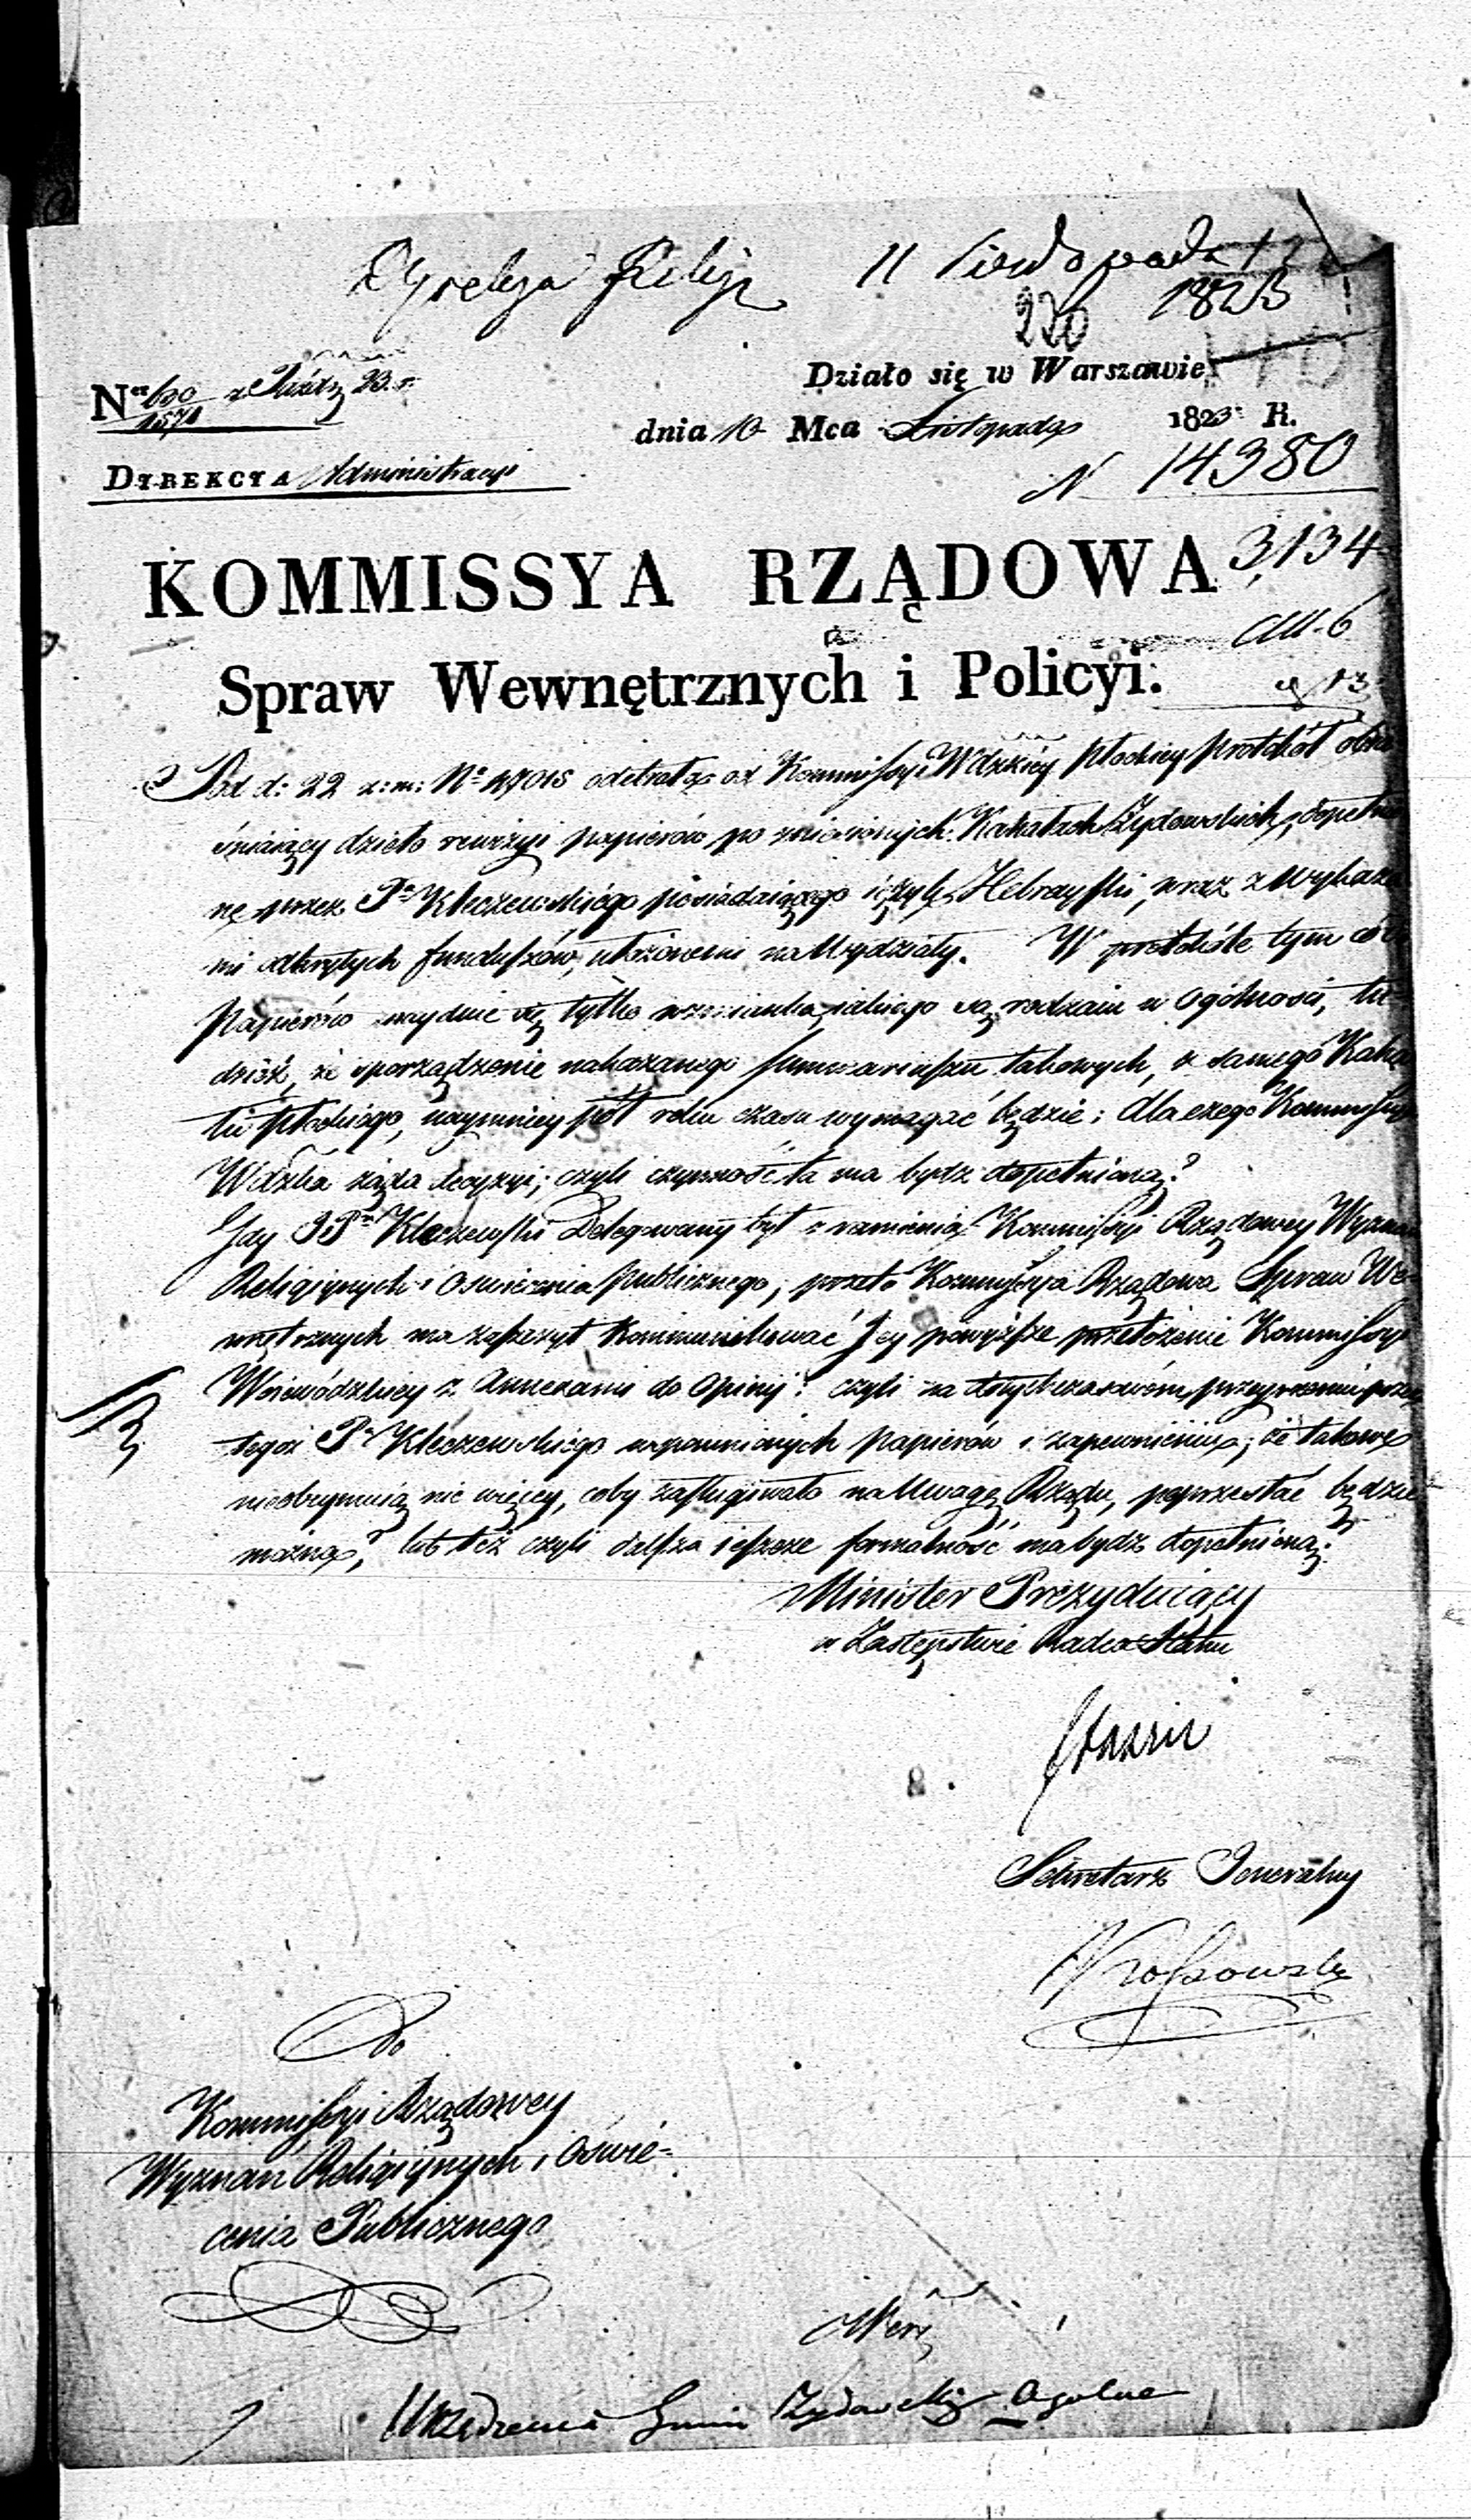 Dyrekcya Relig: 11 Listopada
1823
220
Działo się w Warszawie
Nr 690/1571 z Paźdz 23. r.
dnia 10 Mca Listopada 1823 R.
N 14380
DYREKCYA Administracyi
3,134
KOMMISSYA RZĄDOWA
Spraw Wewnętrznych i Policyi.
Pod d: 22 z: m: No 47015 odebrała od Kommissyi Wdzkiéy Płockiey protokół obia-
śniaiący dzieło rewizyi papierów po zniesionych Kahałach Żydowskich, dopełnio-
ne przez Pa Kleczewskiégo posiadaiącego ięzyk Hebrayski, wraz z wykaza-
mi odkrytych funduszów, ułożonemi na Wydziały. W protokóle tym co do
Papierów znaydnie się tylko wzmianka, iakiego są rodzaiu w ogólności, tu-
dzież, że sporządzenie nakazanego summariuszu takowych, z samego Kaha-
łu Płockiego, naymniey pół roku czasu wymagać będzie; dla czego Kommissya
Wdzka żąda decyzyi; czyli czynność ta ma bydz dopełnioną?
Gdy JPan Kleczewski Delegowany był z ramienia Kommissyi Rządowey Wyznań
Religiynych i Oświecenia Publicznego, przeto Kommissya Rządowa Spraw We-
wnętrznych ma zaszczyt kommunikować Jey powyższe przełożenie Kommissyi
Woiewódzkiey z Annexami do Opinij: czyli na dotychczasowém przeyrzeniu przez
tegoż Pa Kleczewskiégo wspomnionych papierów i zapewnieniu, że takowe
nieobeymuią nic więcey, coby zasługiwało na Uwagę Rządu, poprzestać będzie
można, lub też czyli dalsza ieszcze formalność ma bydz dopełnioną.
Minister Prezyduiący
w Zastępstwie Radca Stanu
Staszic
Sekretarz Generalny
Do
Kommissyi Rządowey
Wyznań Religiynych i Oświe-
cenia Publicznego
Urządzenia Gmin Żydowskich Ogólne